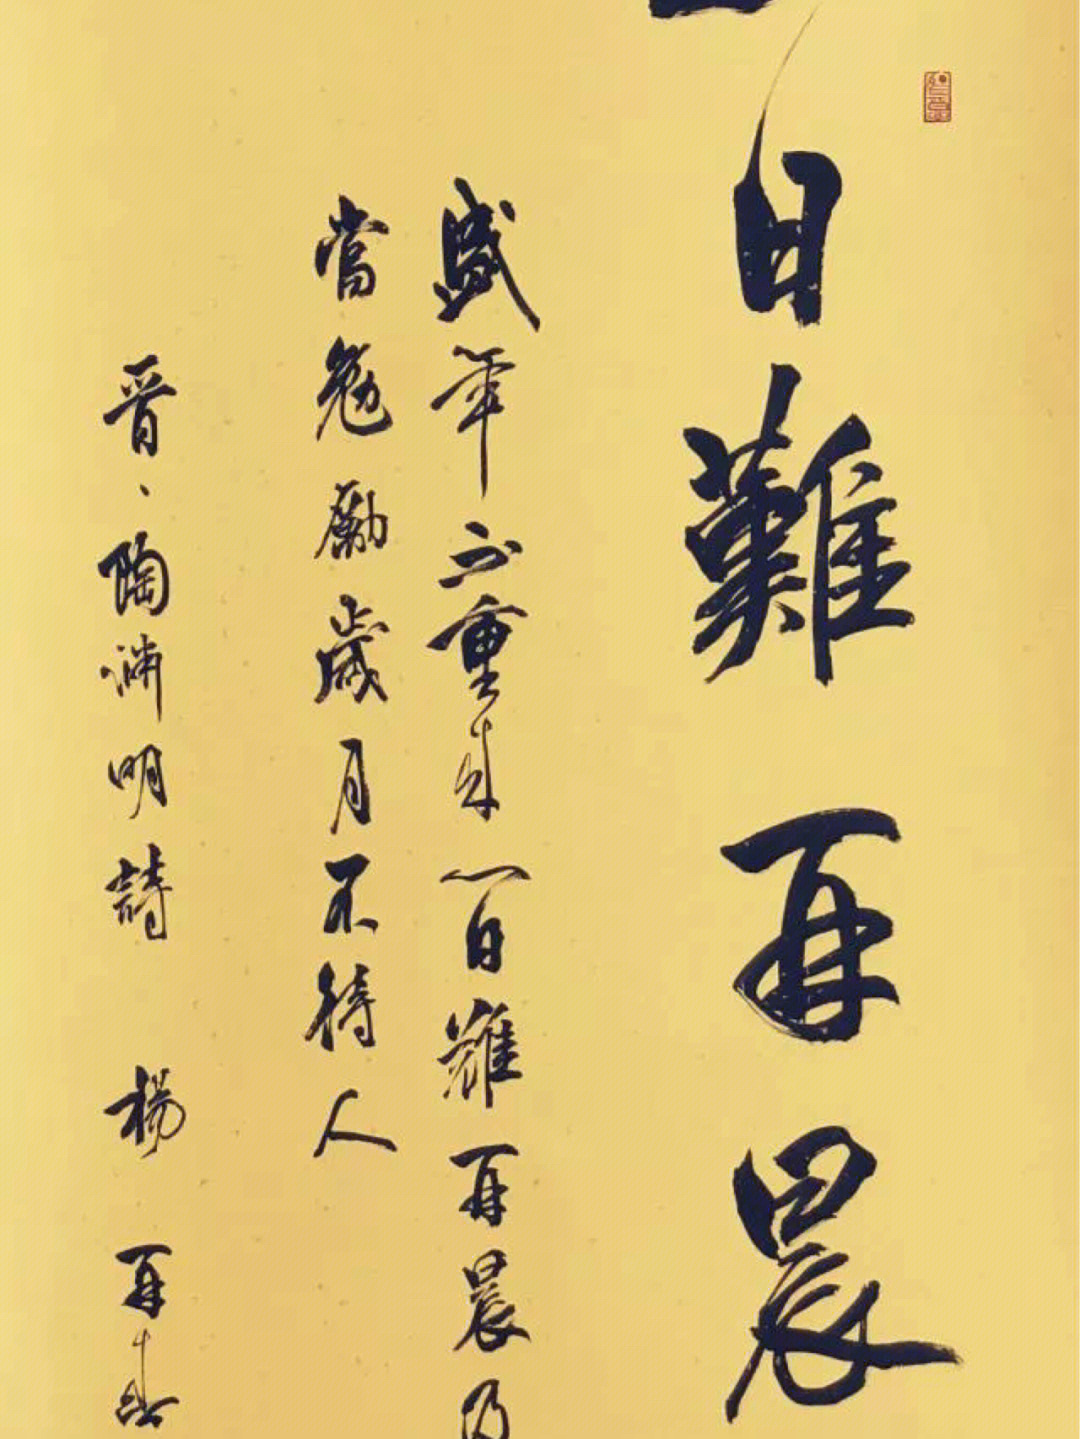 一日難再晨
盛年不重来一日難再晨及
當勉勵歲月不待人
晋、陶渊明詩 楊再春